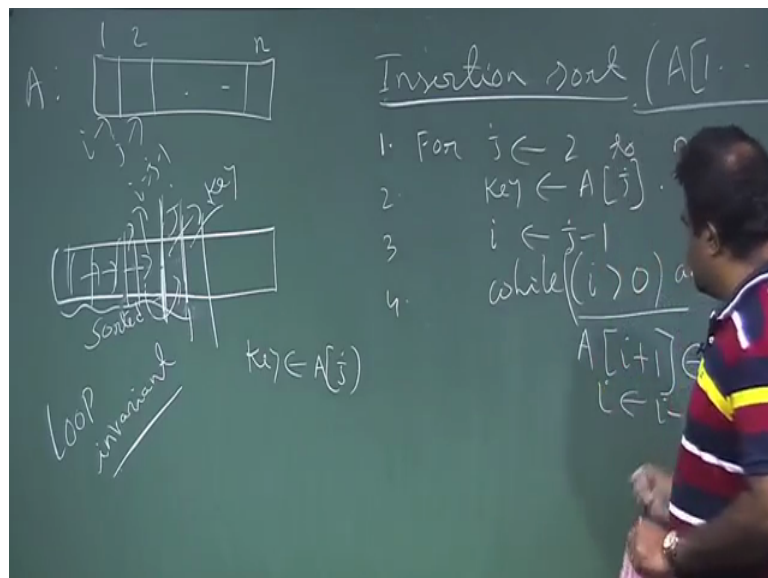 1 2 n
A: . -
i j
i=j-1 j Key
Sorted
Key ← A[j]
LOOP
invariant
Insertion sort (A[1 ..
1. For j ← 2 to n
2. Key ← A[j].
3 i ← j-1
4. while (i > 0) a
A[i+1] ←
i ← i-